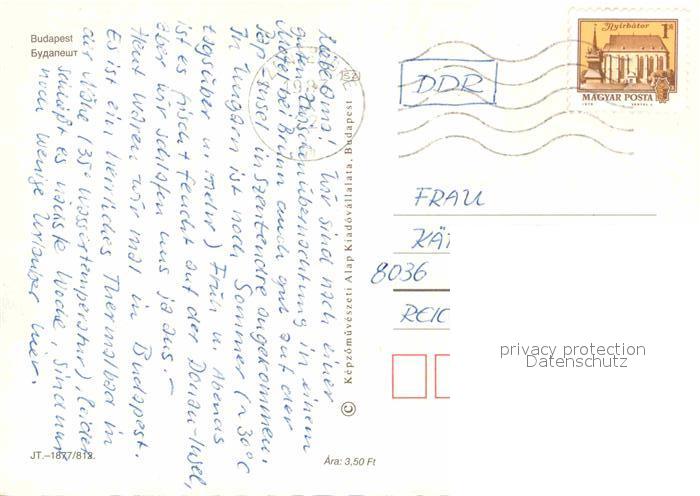 Budapest
Будапешт
Liebe Omi! Wir sind nach einer
guten Zwischenübernachtung in einem
Motel bei Brünn auch gut auf der
Pap-Insel in Szentendre angekommen.
In Ungarn ist noch Sommer (~30°C
tagsüber u. mehr) Früh u. Abends
ist es frisch + feucht auf der Donau-Insel,
aber wir schlafen uns ja aus. –
Heut waren wir mal in Budapest.
Es ist ein herrliches Thermalbad in
der Nähe (35° Wassertemperatur), leider
schließt es nächste Woche, sind nur
noch wenige Urlauber hier.
JT.–1877/812.
Ára: 3,50 Ft
© Képzőművészeti Alap Kiadóvállalata, Budapest
DDR
Nyírbátor
1 Ft
MAGYAR POSTA
FRAU
KÄT
8036
REIC
privacy protection
Datenschutz